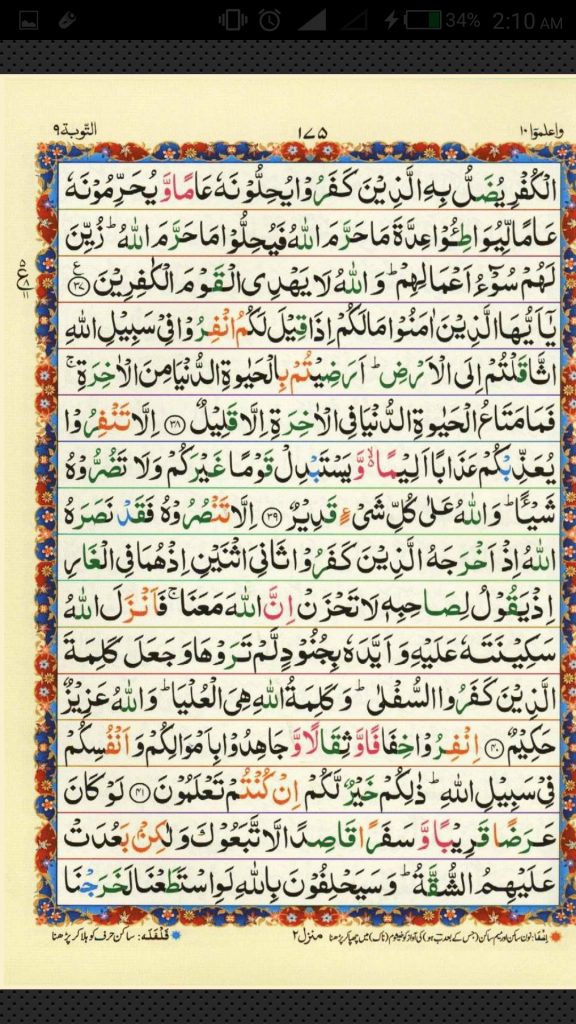 34% 2:10 AM
واعلموا ١٠ ١٧٥ التوبة ٩
الْكُفْرِ يُضَلُّ بِهِ الَّذِيْنَ كَفَرُوْا يُحِلُّوْنَهٗ عَامًا وَّ يُحَرِّمُوْنَهٗ
عَامًا لِّيُوَاطِـُٔوْا عِدَّةَ مَا حَرَّمَ اللّٰهُ فَيُحِلُّوْا مَا حَرَّمَ اللّٰهُ ؕ زُيِّنَ
لَهُمْ سُوْٓءُ اَعْمَالِهِمْ ؕ وَ اللّٰهُ لَا يَهْدِی الْقَوْمَ الْكٰفِرِيْنَ ﴿۳۷﴾
يٰۤاَيُّهَا الَّذِيْنَ اٰمَنُوْا مَا لَكُمْ اِذَا قِيْلَ لَكُمُ انْفِرُوْا فِیْ سَبِيْلِ اللّٰهِ
اثَّاقَلْتُمْ اِلَی الْاَرْضِ ؕ اَرَضِيْتُمْ بِالْحَيٰوةِ الدُّنْيَا مِنَ الْاٰخِرَةِ ۚ
فَمَا مَتَاعُ الْحَيٰوةِ الدُّنْيَا فِی الْاٰخِرَةِ اِلَّا قَلِيْلٌ ﴿۳۸﴾ اِلَّا تَنْفِرُوْا
يُعَذِّبْكُمْ عَذَابًا اَلِيْمًا ۙ۬ وَّ يَسْتَبْدِلْ قَوْمًا غَيْرَكُمْ وَلَا تَضُرُّوْهُ
شَيْـًٔا ؕ وَاللّٰهُ عَلٰی كُلِّ شَیْءٍ قَدِيْرٌ ﴿۳۹﴾ اِلَّا تَنْصُرُوْهُ فَقَدْ نَصَرَهُ
اللّٰهُ اِذْ اَخْرَجَهُ الَّذِيْنَ كَفَرُوْا ثَانِیَ اثْنَيْنِ اِذْ هُمَا فِی الْغَارِ
اِذْ يَقُوْلُ لِصَاحِبِهٖ لَا تَحْزَنْ اِنَّ اللّٰهَ مَعَنَا ۚ فَاَنْزَلَ اللّٰهُ
سَكِيْنَتَهٗ عَلَيْهِ وَ اَيَّدَهٗ بِجُنُوْدٍ لَّمْ تَرَوْهَا وَ جَعَلَ كَلِمَةَ
الَّذِيْنَ كَفَرُوا السُّفْلٰی ؕ وَ كَلِمَةُ اللّٰهِ هِیَ الْعُلْيَا ؕ وَ اللّٰهُ عَزِيْزٌ
حَكِيْمٌ ﴿۴۰﴾ اِنْفِرُوْا خِفَافًا وَّ ثِقَالًا وَّ جَاهِدُوْا بِاَمْوَالِكُمْ وَ اَنْفُسِكُمْ
فِیْ سَبِيْلِ اللّٰهِ ؕ ذٰلِكُمْ خَيْرٌ لَّكُمْ اِنْ كُنْتُمْ تَعْلَمُوْنَ ﴿۴۱﴾ لَوْ كَانَ
عَرَضًا قَرِيْبًا وَّ سَفَرًا قَاصِدًا لَّاتَّبَعُوْكَ وَ لٰكِنْۢ بَعُدَتْ
عَلَيْهِمُ الشُّقَّةُ ؕ وَ سَيَحْلِفُوْنَ بِاللّٰهِ لَوِ اسْتَطَعْنَا لَخَرَجْنَا
اخفا: نون ساکن اور میم ساکن (جس کے بعد ب ہو) کی آواز کو خیشوم (ناک) میں چھپا کر پڑھنا منزل ٢ قلقلہ: ساکن حرف کو ہلا کر پڑھنا